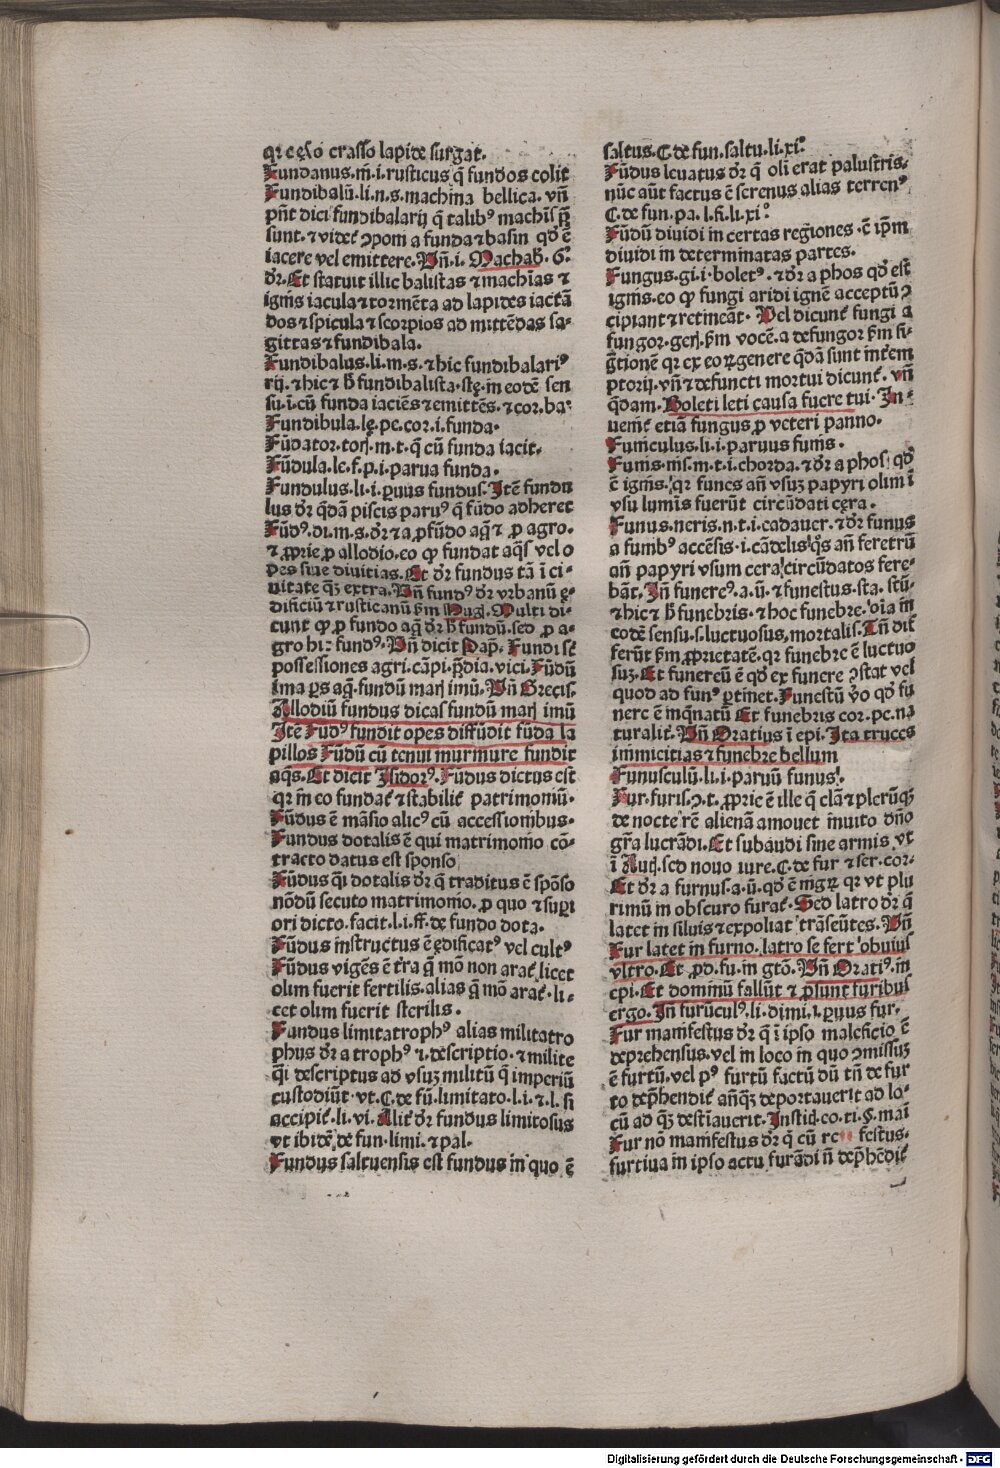 crasso lapide surgat.
Fundanus.m̄.i.rusticus q̄ fundos colit
Fundibalū.li.n.s.machina bellica. vn̄
pn̄t dici fundibalarij q̄ talibꝰ machis
sunt. ⁊ videt᷑ ꝯponi a funda ⁊ basin qd̓ ē
iacere vel emittere. Vn̄.i. Machab̄. 6.
dr̄. Et statuit illic balistas ⁊ machīas ⁊
ignis iacula ⁊ tormēta ad lapides iactā
dos ⁊ spicula ⁊ scorpios ad mittēdas sa-
gittas ⁊ fundibala.
Fundibalus.li.m.s. ⁊ hic fundibalariꝰ
rij. ⁊ hic ⁊ h̄ fundibalista.stę. in eodē sen
su.i.cū funda iaciēs ⁊ emittēs. ⁊ cor.ba
Fundibula.lę.pe.cor.i.funda.
Fūdator.torꝭ.m.t.q̄ cū funda iacit.
Fūdula.le.f.p.i.parua funda.
Fundulus.li.i.ꝑuus fundus. Itē fundu
lus dr̄ qdā piscis paruꝰ q̄ fūdo adheret
Fūdꝰ.di.m.s. dr̄ ⁊ a ꝓfūdo aq̄ ⁊ ꝓ agro.
⁊ ꝓprie ꝓ allodio.eo ꝙ fundat aq̄s vel o
pes siue diuitias. Et dr̄ fundus tā ī ci-
uitate q̄ꝫ extra. Vn̄ fundꝰ dr̄ vrbanū ę-
dificiū ⁊ rusticanū ẜm Hug. Multi di-
cunt ꝙ ꝓ fundo aq̄ dr̄ h̄ fundū. sed ꝓ a-
gro hic fundꝰ. Vn̄ dicit Pap̄. Fundi st̄
possessiones agri.cāpi.p̄dia.vici. Fūdū
ima ꝑs aq̄. fundū marꝭ imū. Vn̄ Grecis.
Allodiū fundus dicas fundū marꝭ imū
Itē Fūdꝰ fundit opes diffūdit fūda la
pillos Fūdū cū tenui murmure fundit
aq̄s. Et dicit Isidorꝰ. Fūdus dictus est
qr in eo fundat᷑ ⁊ stabilit᷑ patrimoniū.
Fūdus ē māsio alicꝰ cū accessionibus.
Fundus dotalis ē qui matrimonio cō-
tracto datus est sponso
Fūdus q̄i dotalis dr̄ q̄ traditus ē spōso
nōdū secuto matrimonio. ꝓ quo ⁊ supi
ori dicto. facit.l.i.ff.de fundo dota.
Fūdus instructus ē ędificatꝰ vel cultꝰ
Fūdus vigēs ē t̄ra q̄ mō non arat᷑ licet
olim fuerit fertilis. alias q̄ mō arat᷑. li-
cet olim fuerit sterilis.
Fundus limitatrophꝰ alias militatro
phus dr̄ a trophꝰ .i. descriptio. ⁊ milite
q̄i descriptus ad vsuꝫ militū q̄ imperiū
custodiūt. vt. C. de fū. limitato.l.i. ⁊ l. si
accipit᷑. li. vi. Alit᷑ dr̄ fundus limitosus
vt ibidē de fun. limi. ⁊ pal.
Fundus saltuensis est fundus in quo ē
saltus. C. de fun. saltu. li. xi.
Fūdus leuatus dr̄ q̄ oli erat palustris.
nūc aūt factus ē serenus alias terrenꝰ
C. de fun. pa. l. fi. li. xi.
Fūdū diuidi in certas regiones. ē ip̄m
diuidi in determinatas partes.
Fungus.gi.i.boletꝰ. ⁊ dr̄ a phos qd̓ est
ignis. eo ꝙ fungi aridi ignē acceptū ꝯ
cipiant ⁊ retineāt. Vel dicunt᷑ fungi a
fungor.gerꝭ. ẜm vocē. a defungor ẜm si-
ḡtionē qr ex eoꝝ genere q̄dā sunt int᷑em
ptorij. vn̄ ⁊ defuncti mortui dicunt᷑. vn̄
q̄dam. Boleti leti causa fuere tui. In-
uenit᷑ etiā fungus ꝓ veteri panno.
Funiculus.li.i.paruus funis.
Funis.nis.m.t.i.chorda. ⁊ dr̄ a phos qd̓
ē ignis. qr funes an̄ vsuꝫ papyri olim ī
vsu luminis fuerūt circūdati cęra.
Funus.neris.n.t.i.cadauer. ⁊ dr̄ funus
a funibꝰ accēsis.i.cādelis q̄s an̄ feretrū
an̄ papyri vsum cera circūdatos fere-
bāt. Īn̄ funereꝰ.a.ū. ⁊ funestus.sta.stū.
⁊ hic ⁊ h̄ funebris. ⁊ hoc funebre. oīa in
eodē sensu.s.luctuosus, mortalis. Tn̄ dif
ferūt ẜm ꝓprietatē. qr funebre ē luctuo
suꝫ. Et funereū ē qd̓ ex funere ꝯstat vel
quod ad funꝰ ꝑtinet. Funestū v̓o qd̓ fu
nere ē inq̄natū Et funebris cor.pe.na
turalit᷑. Vn̄ Oratius ī epi. Ira truces
inimicitias ⁊ funebre bellum
Funusculū.li.i.paruū funus.
Fur.furis.ꝯ.t. ꝓprie ē ille q̄ clā ⁊ plerūqꝫ
de nocte rē alienā amouet inuito dn̄o
gr̄a lucrādi. Et subaudi sine armis vt
ī Auꝗ. sed nouo iure. C. de fur. ⁊ ser. cor.
Et dr̄ a furnus.a.ū. qd̓ ē nigꝝ qr vt plu
rimū in obscuro furat᷑. Sed latro dr̄ q̄
latet in siluis ⁊ expoliat trāseūtes. Vn̄
Fur latet in furno. latro se fert obuius
vltro. Et ꝓd. fu. in gtō. Vn̄ Oratiꝰ. in
epi. Et dominū fallūt ⁊ ꝓsunt furibus
ergo. Īn̄ furūculꝰ.li.dimi.i.ꝑuus fur.
Fur manifestus dr̄ q̄ ī ipso maleficio ē
deprehensus. vel in loco in quo ꝯmissuꝫ
ē furtū. vel pꝰ furtū factū dū tn̄ de fur
to dep̄hendit᷑ an̄q̄ꝫ deportauerit ad lo-
cū ad quē destīauerit. Instiꝗ. eo. ti. §. mai
Fur nō manifestus dr̄ q̄ cū re festus.
furtiua in ipso actu furādi n̄ dep̄hēdit᷑
Digitalisierung gefördert durch die Deutsche Forschungsgemeinschaft - DFG